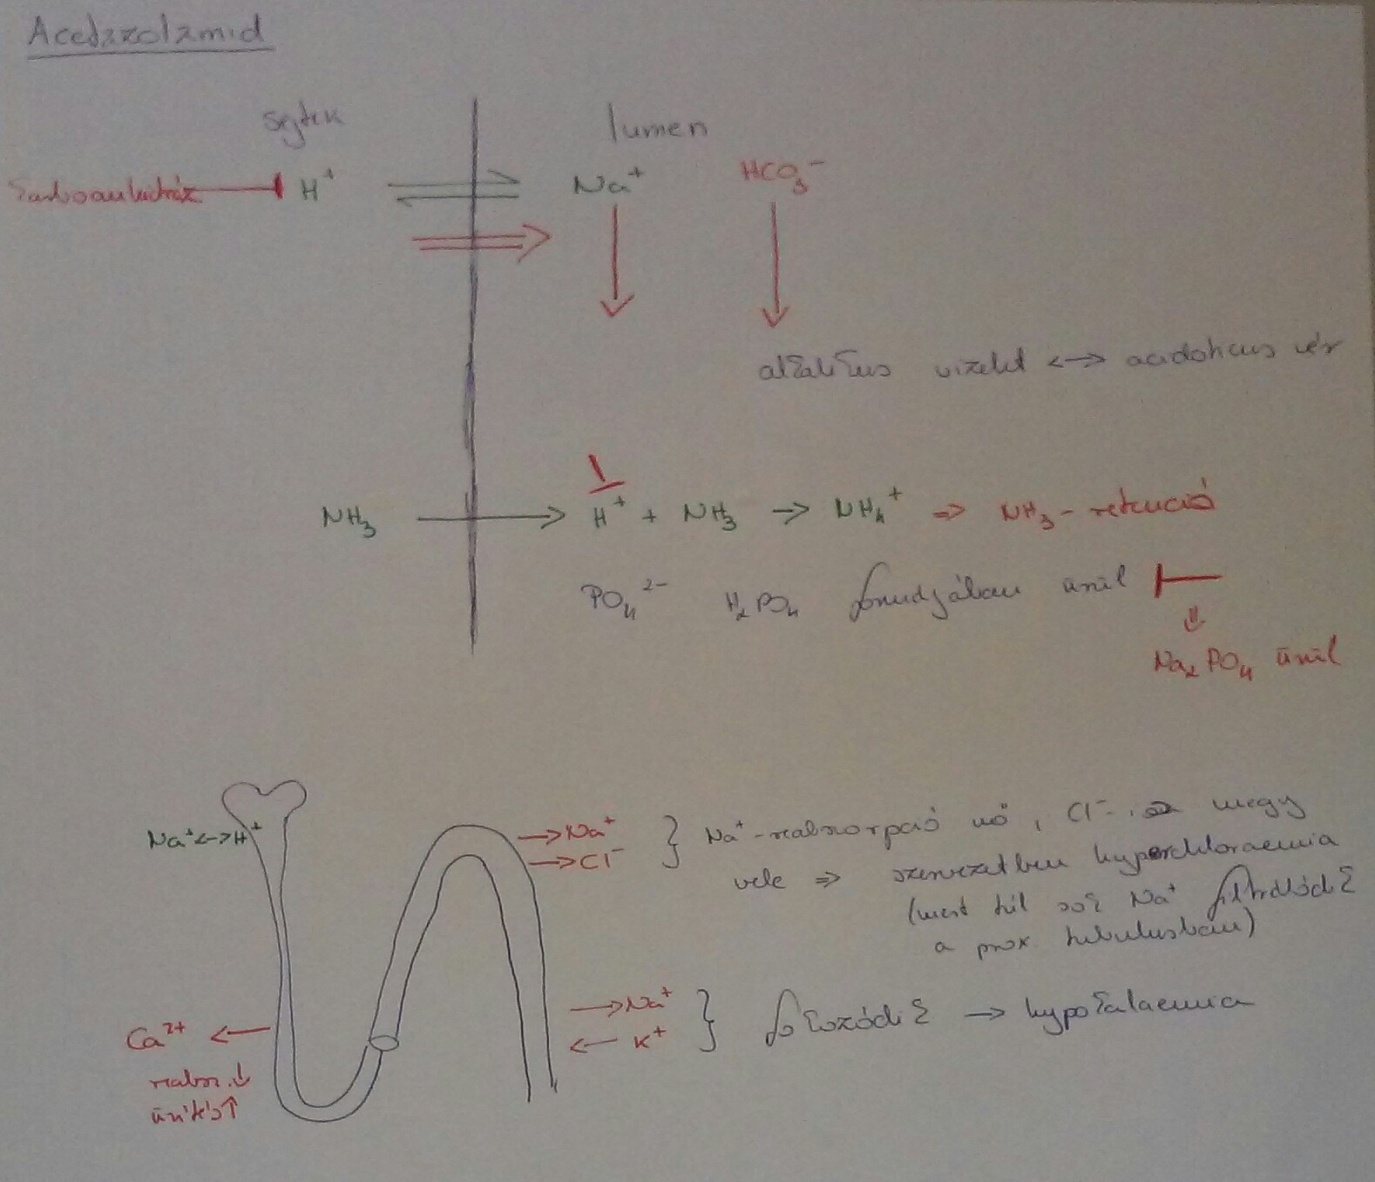 Acetazolamid
sejtek lumen
Karboanhidráz H⁺ Na⁺ HCO₃⁻
alkalikus vizelet <-> acidotikus vér
NH₃ → H⁺ + NH₃ → NH₄⁺ ⇒ NH₃-retenció
PO₄²⁻ H₂PO₄ formájában ürül
⇓
Na₂PO₄ ürül
Na⁺<->H⁺
→Na⁺
→Cl⁻
} Na⁺-reabszorpció nő, Cl⁻ is megy
vele ⇒ szervezetben hyperchloraemia
(mert túl sok Na⁺ filtrálódik
a prox tubulusban)
→Na⁺
← K⁺
} fokozódik → hypokalaemia
Ca²⁺ ←
reabsz.↓
ürítés↑